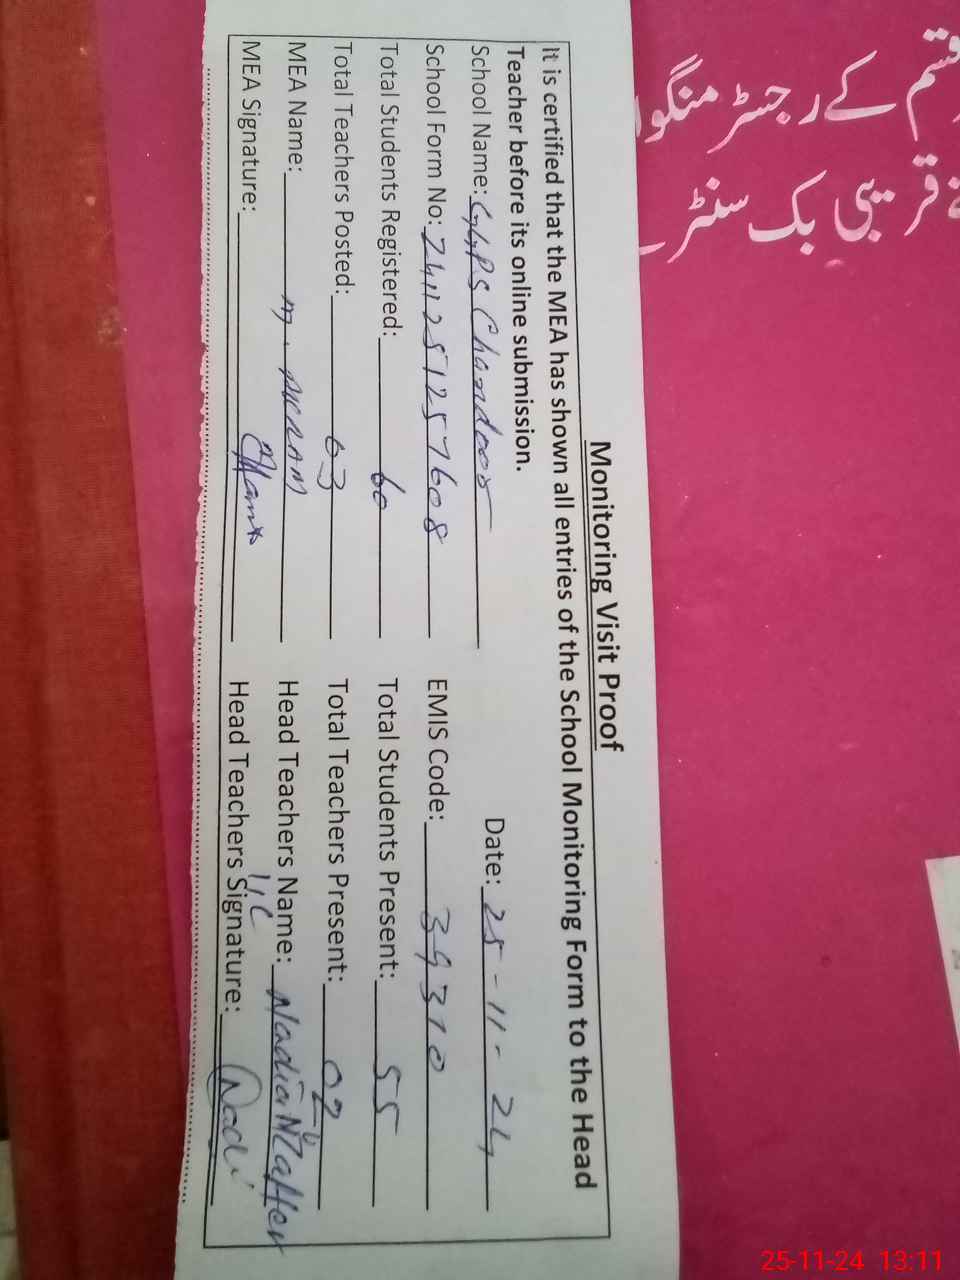 قسم کے رجسٹر منگو
قریبی بک سنٹر
Monitoring Visit Proof
It is certified that the MEA has shown all entries of the School Monitoring Form to the Head
Teacher before its online submission.
School Name: GGPS Chandoor Date: 25-11-24
School Form No: 2411251257608 EMIS Code: 39310
Total Students Registered: 60 Total Students Present: 55
Total Teachers Posted: 03 Total Teachers Present: 02
MEA Name: M. AKRAM Head Teachers Name: Nadia
MEA Signature: Head Teachers Signature: Nadi
25-11-24 13:11